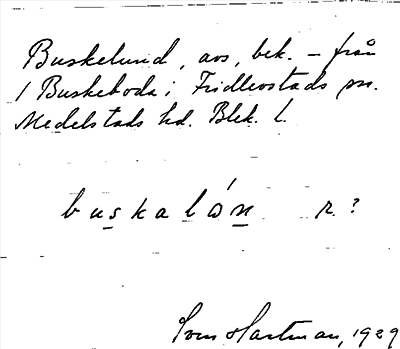 Buskelund, avs, bek. – från
1 Buskeboda i Fridlevstads sn.
Medelstads hd. Blek. l.
buskalón r.?
Sven Hartman, 1929